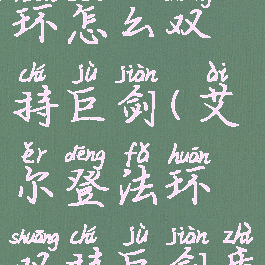 环怎么双
chí jù jiàn ài
持巨剑(艾
ěr dēng fǎ huán
尔登法环
shuāng chí jù jiàn zhà
双持巨剑